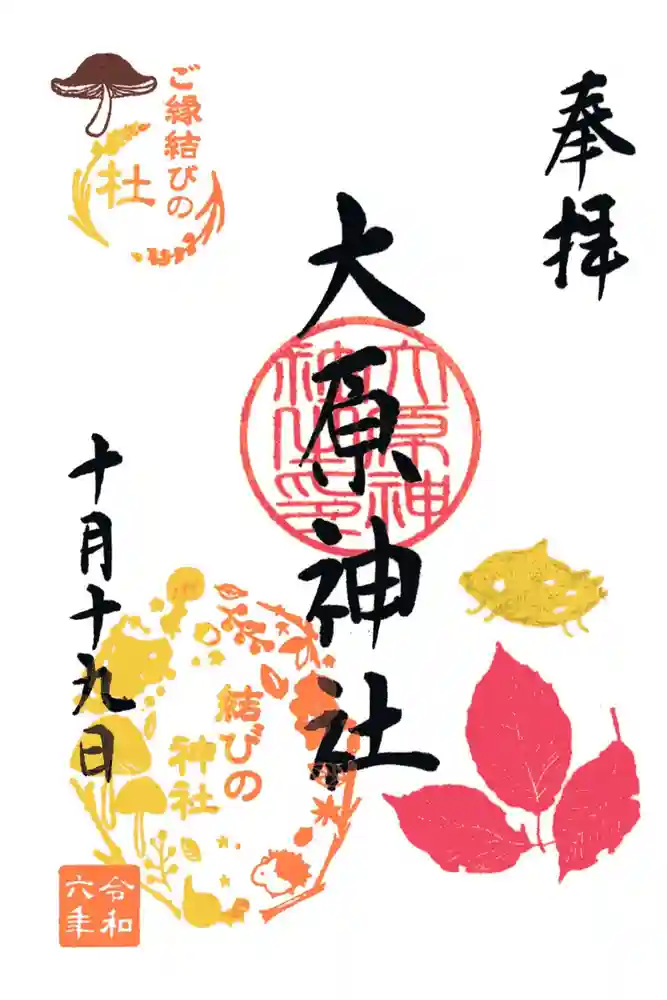 奉拝
大原神社
大原神社印
ご縁結びの
社
十月十九日
結びの
神社
令和
六年